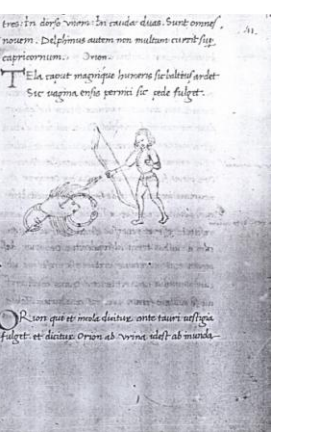 tres: In dorso unam: In cauda duas. Sunt omnes
nouem. Delphinus autem non multum currit sup
capricornum. Orion.
TEla caput magnique humeris sic baltius ardet
Sic vagina ensis pernici sic pede fulget.
ORion que et dicitur ante tauri vestigia
fulget. et dicitur Orion ab vrina idest ab inunda-